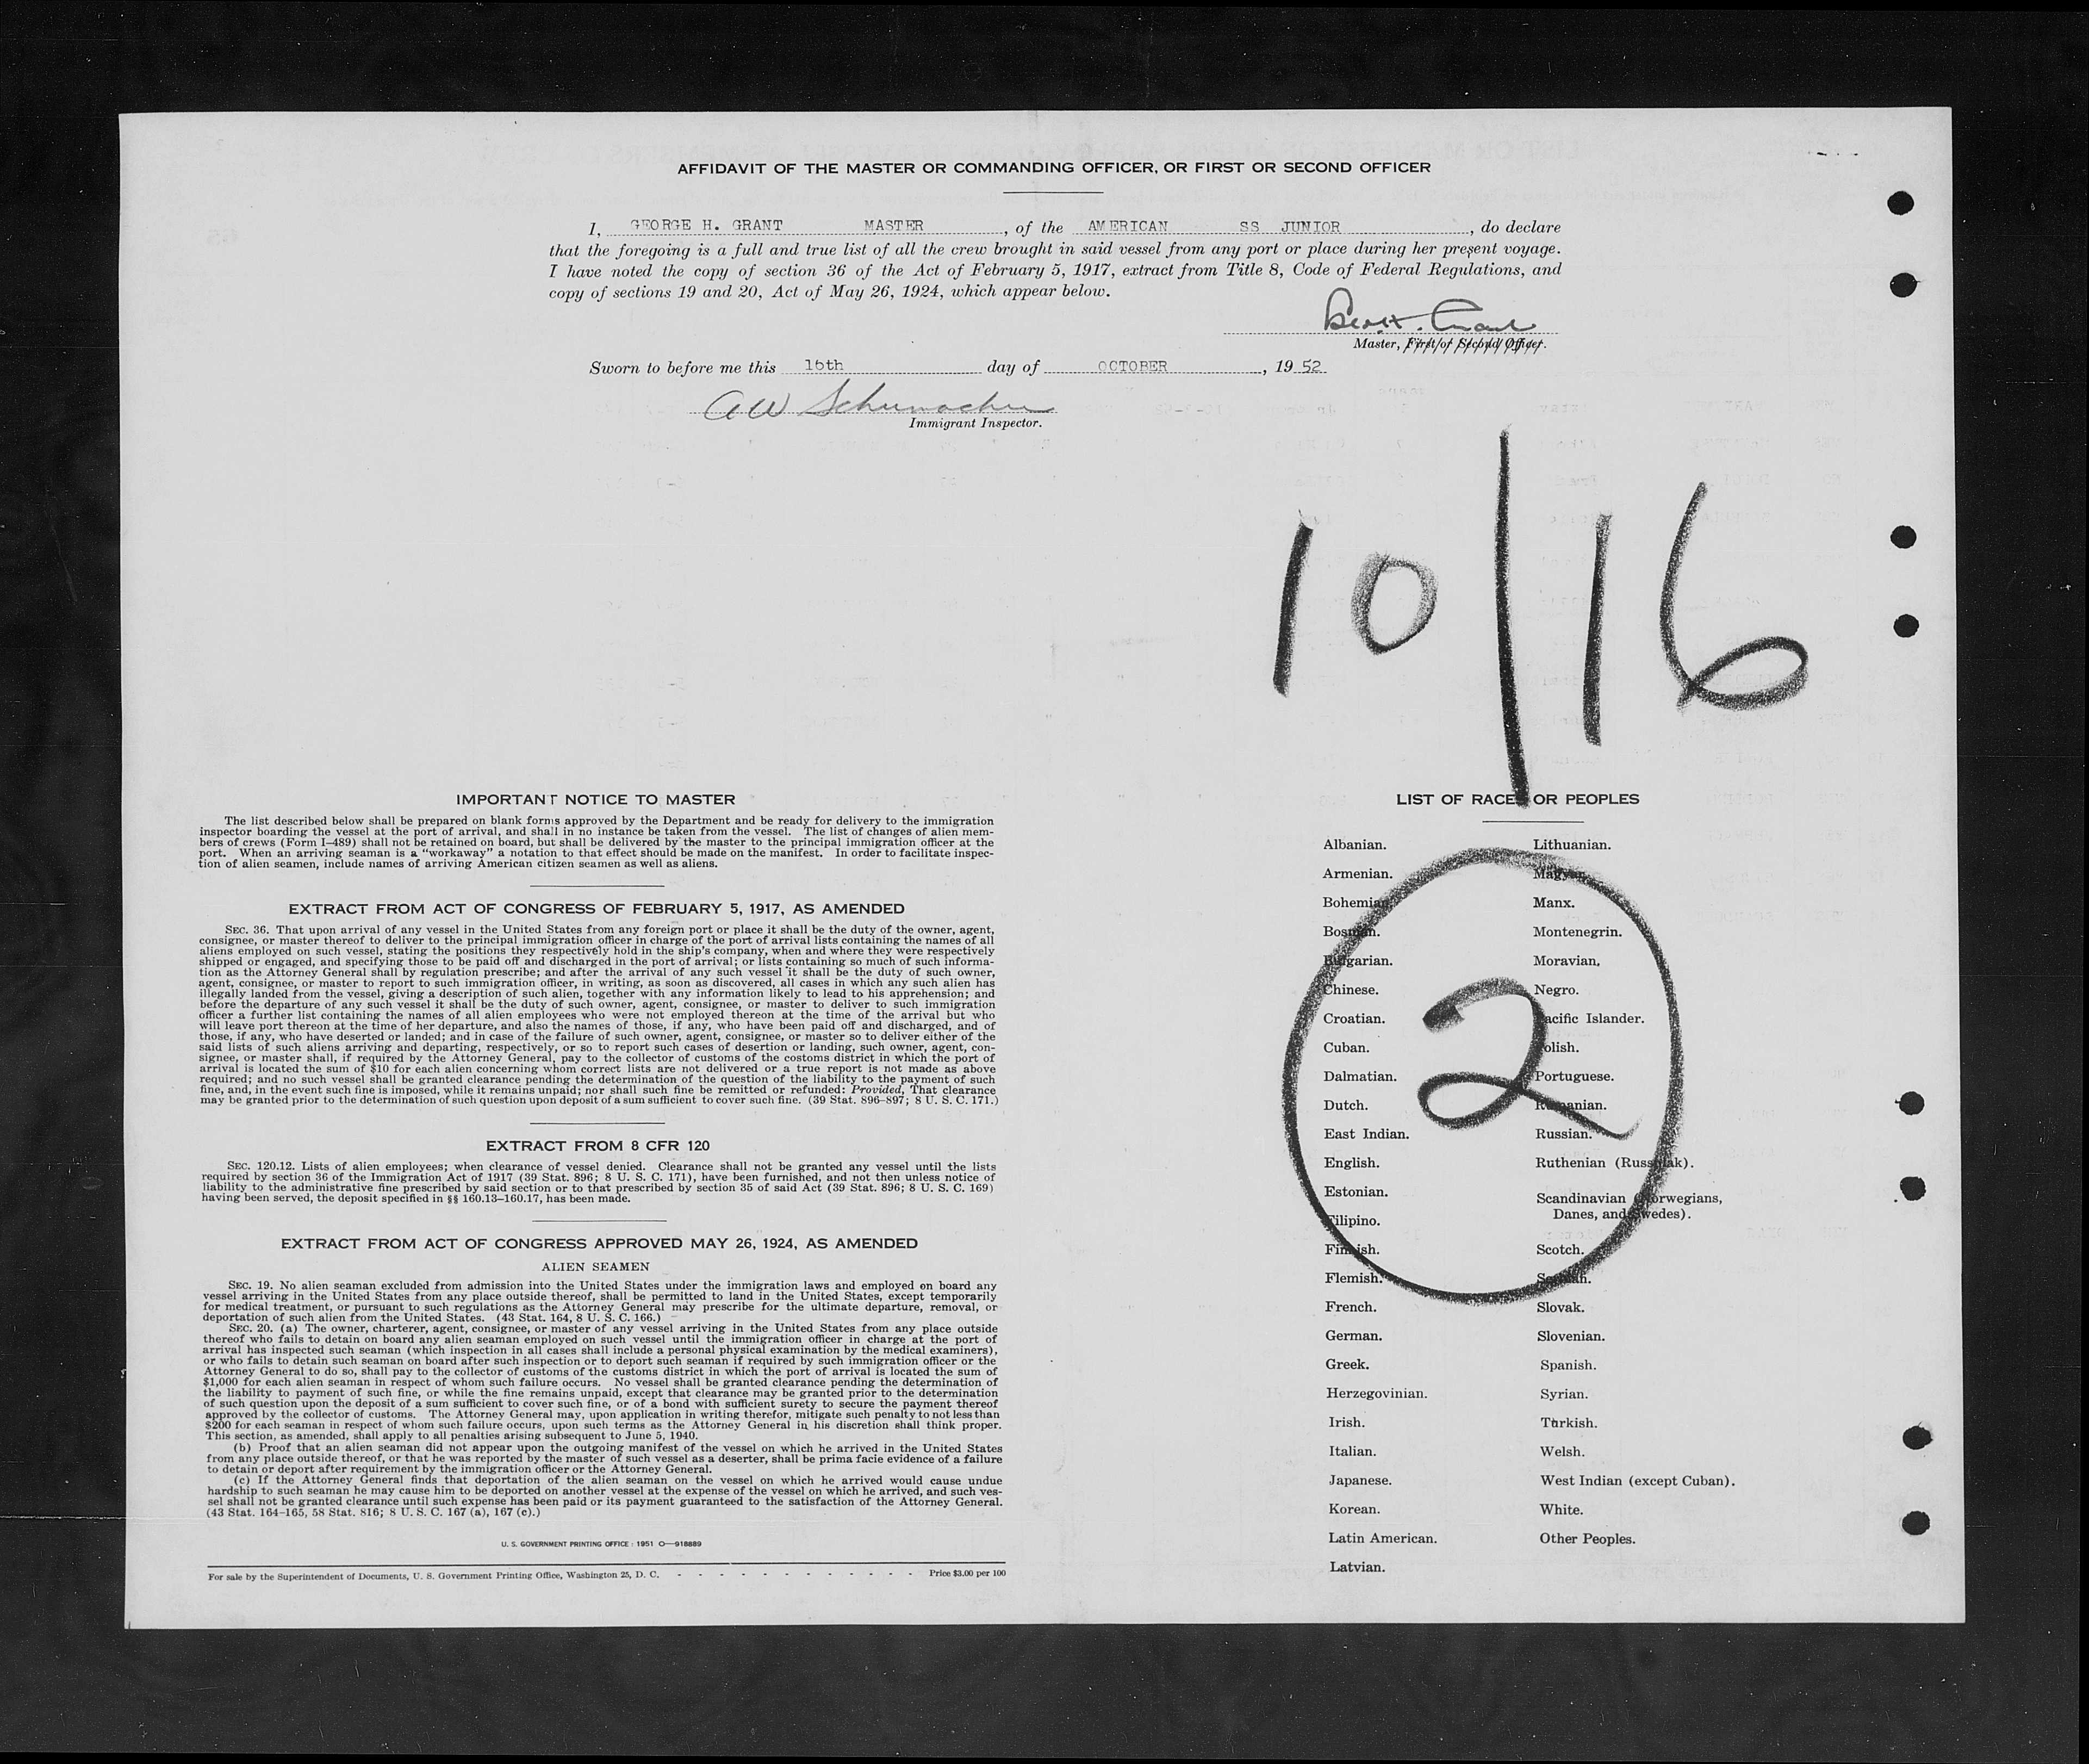 AFFIDAVIT OF THE MASTER OR COMMANDING OFFICER, OR FIRST OR SECOND OFFICER
I, GEORGE H. GRANT MASTER, of the AMERICAN SS JUNIOR, do declare
that the foregoing is a full and true list of all the crew brought in said vessel from any port or place during her present voyage.
I have noted the copy of section 36 of the Act of February 5, 1917, extract from Title 8, Code of Federal Regulations, and
copy of sections 19 and 20, Act of May 26, 1924, which appear below.
Geo. H. Grant
Master, First or Second Officer.
Sworn to before me this 16th day of OCTOBER, 19 52
A W Schumacher
Immigrant Inspector.
10/16
IMPORTANT NOTICE TO MASTER
The list described below shall be prepared on blank forms approved by the Department and be ready for delivery to the immigration
inspector boarding the vessel at the port of arrival, and shall in no instance be taken from the vessel. The list of changes of alien mem-
bers of crews (Form I–489) shall not be retained on board, but shall be delivered by the master to the principal immigration officer at the
port. When an arriving seaman is a "workaway" a notation to that effect should be made on the manifest. In order to facilitate inspec-
tion of alien seamen, include names of arriving American citizen seamen as well as aliens.
EXTRACT FROM ACT OF CONGRESS OF FEBRUARY 5, 1917, AS AMENDED
SEC. 36. That upon arrival of any vessel in the United States from any foreign port or place it shall be the duty of the owner, agent,
consignee, or master thereof to deliver to the principal immigration officer in charge of the port of arrival lists containing the names of all
aliens employed on such vessel, stating the positions they respectively hold in the ship's company, when and where they were respectively
shipped or engaged, and specifying those to be paid off and discharged in the port of arrival; or lists containing so much of such informa-
tion as the Attorney General shall by regulation prescribe; and after the arrival of any such vessel it shall be the duty of such owner,
agent, consignee, or master to report to such immigration officer, in writing, as soon as discovered, all cases in which any such alien has
illegally landed from the vessel, giving a description of such alien, together with any information likely to lead to his apprehension; and
before the departure of any such vessel it shall be the duty of such owner, agent, consignee, or master to deliver to such immigration
officer a further list containing the names of all alien employees who were not employed thereon at the time of the arrival but who
will leave port thereon at the time of her departure, and also the names of those, if any, who have been paid off and discharged, and of
those, if any, who have deserted or landed; and in case of the failure of such owner, agent, consignee, or master so to deliver either of the
said lists of such aliens arriving and departing, respectively, or so to report such cases of desertion or landing, such owner, agent, con-
signee, or master shall, if required by the Attorney General, pay to the collector of customs of the costoms district in which the port of
arrival is located the sum of $10 for each alien concerning whom correct lists are not delivered or a true report is not made as above
required; and no such vessel shall be granted clearance pending the determination of the question of the liability to the payment of such
fine, and, in the event such fine is imposed, while it remains unpaid; nor shall such fine be remitted or refunded: Provided, That clearance
may be granted prior to the determination of such question upon deposit of a sum sufficient to cover such fine. (39 Stat. 896–897; 8 U. S. C. 171.)
EXTRACT FROM 8 CFR 120
SEC. 120.12. Lists of alien employees; when clearance of vessel denied. Clearance shall not be granted any vessel until the lists
required by section 36 of the Immigration Act of 1917 (39 Stat. 896; 8 U. S. C. 171), have been furnished, and not then unless notice of
liability to the administrative fine prescribed by said section or to that prescribed by section 35 of said Act (39 Stat. 896; 8 U. S. C. 169)
having been served, the deposit specified in §§ 160.13–160.17, has been made.
EXTRACT FROM ACT OF CONGRESS APPROVED MAY 26, 1924, AS AMENDED
ALIEN SEAMEN
SEC. 19. No alien seaman excluded from admission into the United States under the immigration laws and employed on board any
vessel arriving in the United States from any place outside thereof, shall be permitted to land in the United States, except temporarily
for medical treatment, or pursuant to such regulations as the Attorney General may prescribe for the ultimate departure, removal, or
deportation of such alien from the United States. (43 Stat. 164, 8 U. S. C. 166.)
SEC. 20. (a) The owner, charterer, agent, consignee, or master of any vessel arriving in the United States from any place outside
thereof who fails to detain on board any alien seaman employed on such vessel until the immigration officer in charge at the port of
arrival has inspected such seaman (which inspection in all cases shall include a personal physical examination by the medical examiners),
or who fails to detain such seaman on board after such inspection or to deport such seaman if required by such immigration officer or the
Attorney General to do so, shall pay to the collector of customs of the customs district in which the port of arrival is located the sum of
$1,000 for each alien seaman in respect of whom such failure occurs. No vessel shall be granted clearance pending the determination of
the liability to payment of such fine, or while the fine remains unpaid, except that clearance may be granted prior to the determination
of such question upon the deposit of a sum sufficient to cover such fine, or of a bond with sufficient surety to secure the payment thereof
approved by the collector of customs. The Attorney General may, upon application in writing therefor, mitigate such penalty to not less than
$200 for each seaman in respect of whom such failure occurs, upon such terms as the Attorney General in his discretion shall think proper.
This section, as amended, shall apply to all penalties arising subsequent to June 5, 1940.
(b) Proof that an alien seaman did not appear upon the outgoing manifest of the vessel on which he arrived in the United States
from any place outside thereof, or that he was reported by the master of such vessel as a deserter, shall be prima facie evidence of a failure
to detain or deport after requirement by the immigration officer or the Attorney General.
(c) If the Attorney General finds that deportation of the alien seaman on the vessel on which he arrived would cause undue
hardship to such seaman he may cause him to be deported on another vessel at the expense of the vessel on which he arrived, and such ves-
sel shall not be granted clearance until such expense has been paid or its payment guaranteed to the satisfaction of the Attorney General.
(43 Stat. 164–165, 58 Stat. 816; 8 U. S. C. 167 (a), 167 (c).)
U. S. GOVERNMENT PRINTING OFFICE : 1951 O—918889
For sale by the Superintendent of Documents, U. S. Government Printing Office, Washington 25, D. C. - - - - - - - - - - - - - Price $3.00 per 100
LIST OF RACES OR PEOPLES
Albanian.
Armenian.
Bohemian.
Bosnian.
Bulgarian.
Chinese.
Croatian.
Cuban.
Dalmatian.
Dutch.
East Indian.
English.
Estonian.
Filipino.
Finnish.
Flemish.
French.
German.
Greek.
Herzegovinian.
Irish.
Italian.
Japanese.
Korean.
Latin American.
Latvian.
Lithuanian.
Magyar.
Manx.
Montenegrin.
Moravian.
Negro.
Pacific Islander.
Polish.
Portuguese.
Rumanian.
Russian.
Ruthenian (Russniak).
Scandinavian (Norwegians,
Danes, and Swedes).
Scotch.
Serbian.
Slovak.
Slovenian.
Spanish.
Syrian.
Turkish.
Welsh.
West Indian (except Cuban).
White.
Other Peoples.
2